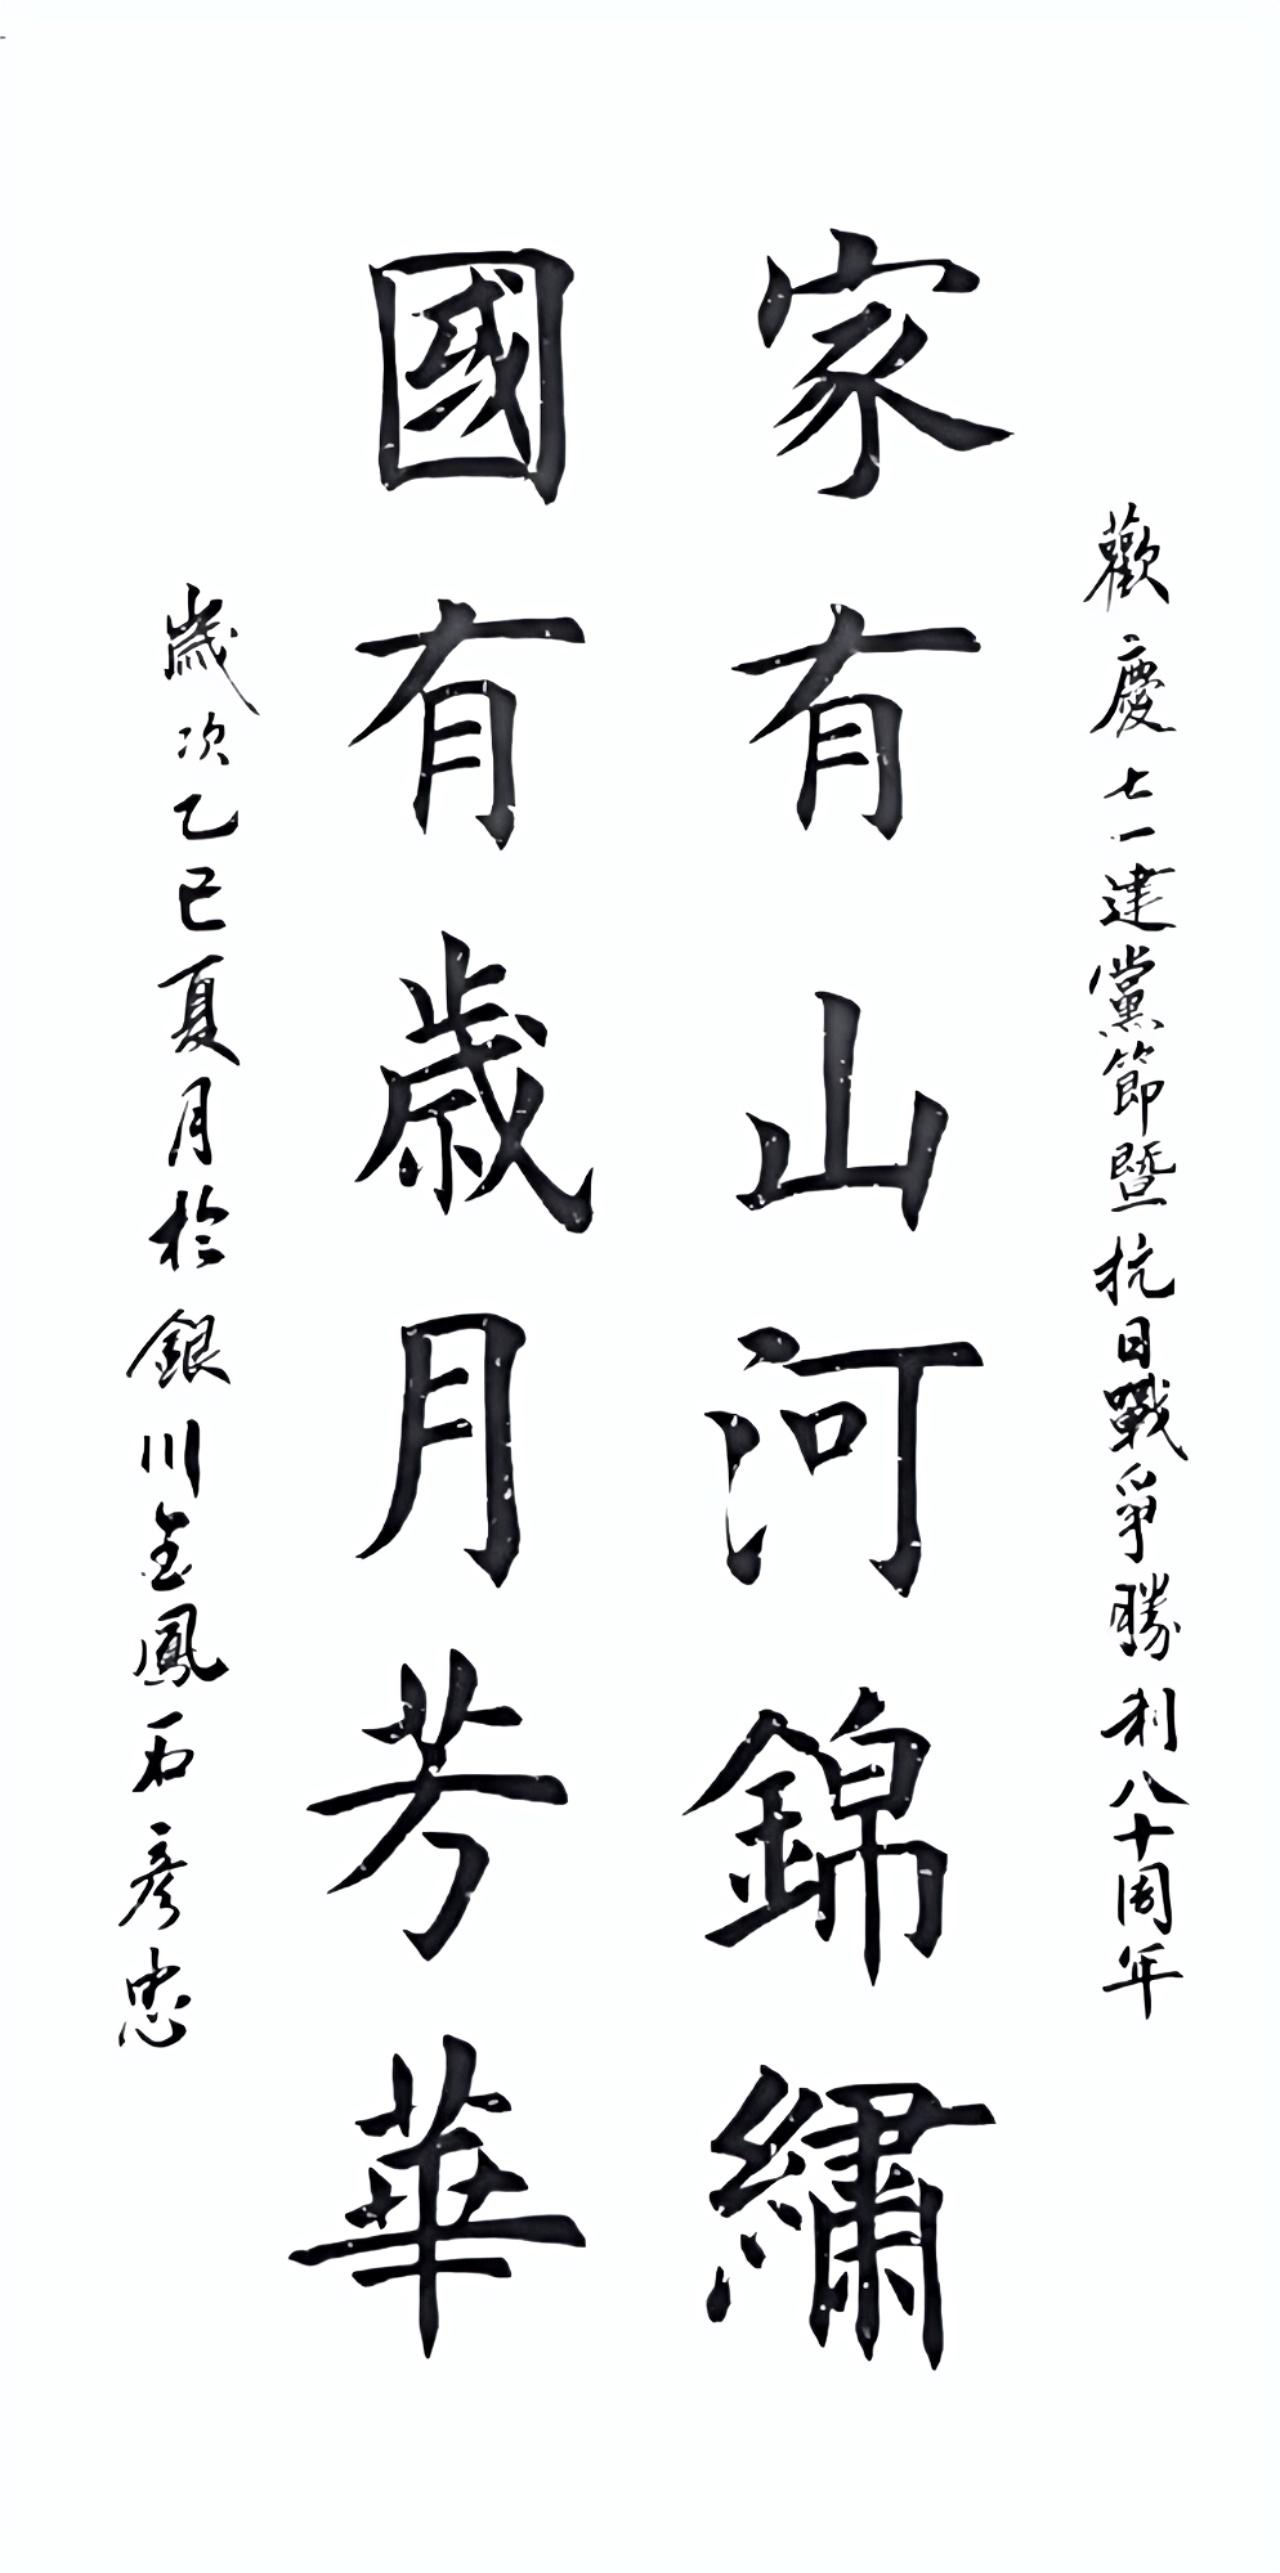 歡慶七一建黨節暨抗日戰爭勝利八十周年
家有山河錦繡
國有歲月芳華
歲次乙巳夏月於銀川金鳳石彥忠